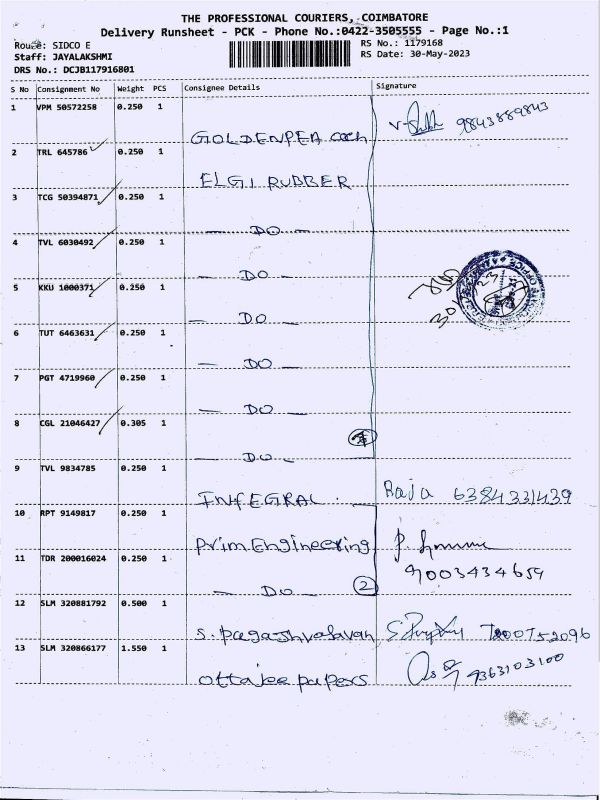 THE PROFESSIONAL COURIERS, COIMBATORE
Delivery Runsheet - PCK - Phone No.:0422-3505555 - Page No.:1
Route: SIDCO E
RS No.: 1179168
Staff: JAYALAKSHMI
RS Date: 30-May-2023
DRS No.: DCJB117916801
S No Consignment No Weight PCS Consignee Details Signature
1 VPM 50572258 0.250 1 GOLDENPEA 9843889843
2 TRL 645786 0.250 1 ELGI RUBBER
3 TCG 50394871 0.250 1 — DO —
4 TVL 6030492 0.250 1 — DO —
5 KKU 1000371 0.250 1 — DO —
6 TUT 6463631 0.250 1 — DO —
7 PGT 4719960 0.250 1 — DO —
8 CGL 21046427 0.305 1 — DO —
9 TVL 9834785 0.250 1 INTEGRAL. Raja 6384331439
10 RPT 9149817 0.250 1 Prim Engineering
11 TDR 200016024 0.250 1 — DO — 2 9003434659
12 SLM 320881792 0.500 1
13 SLM 320866177 1.550 1 ottajee papers 9363103100